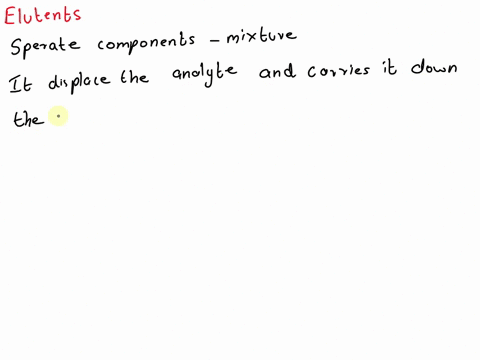 Elutents
Sperate components - mixture
It displace the analyte and carries it down
the